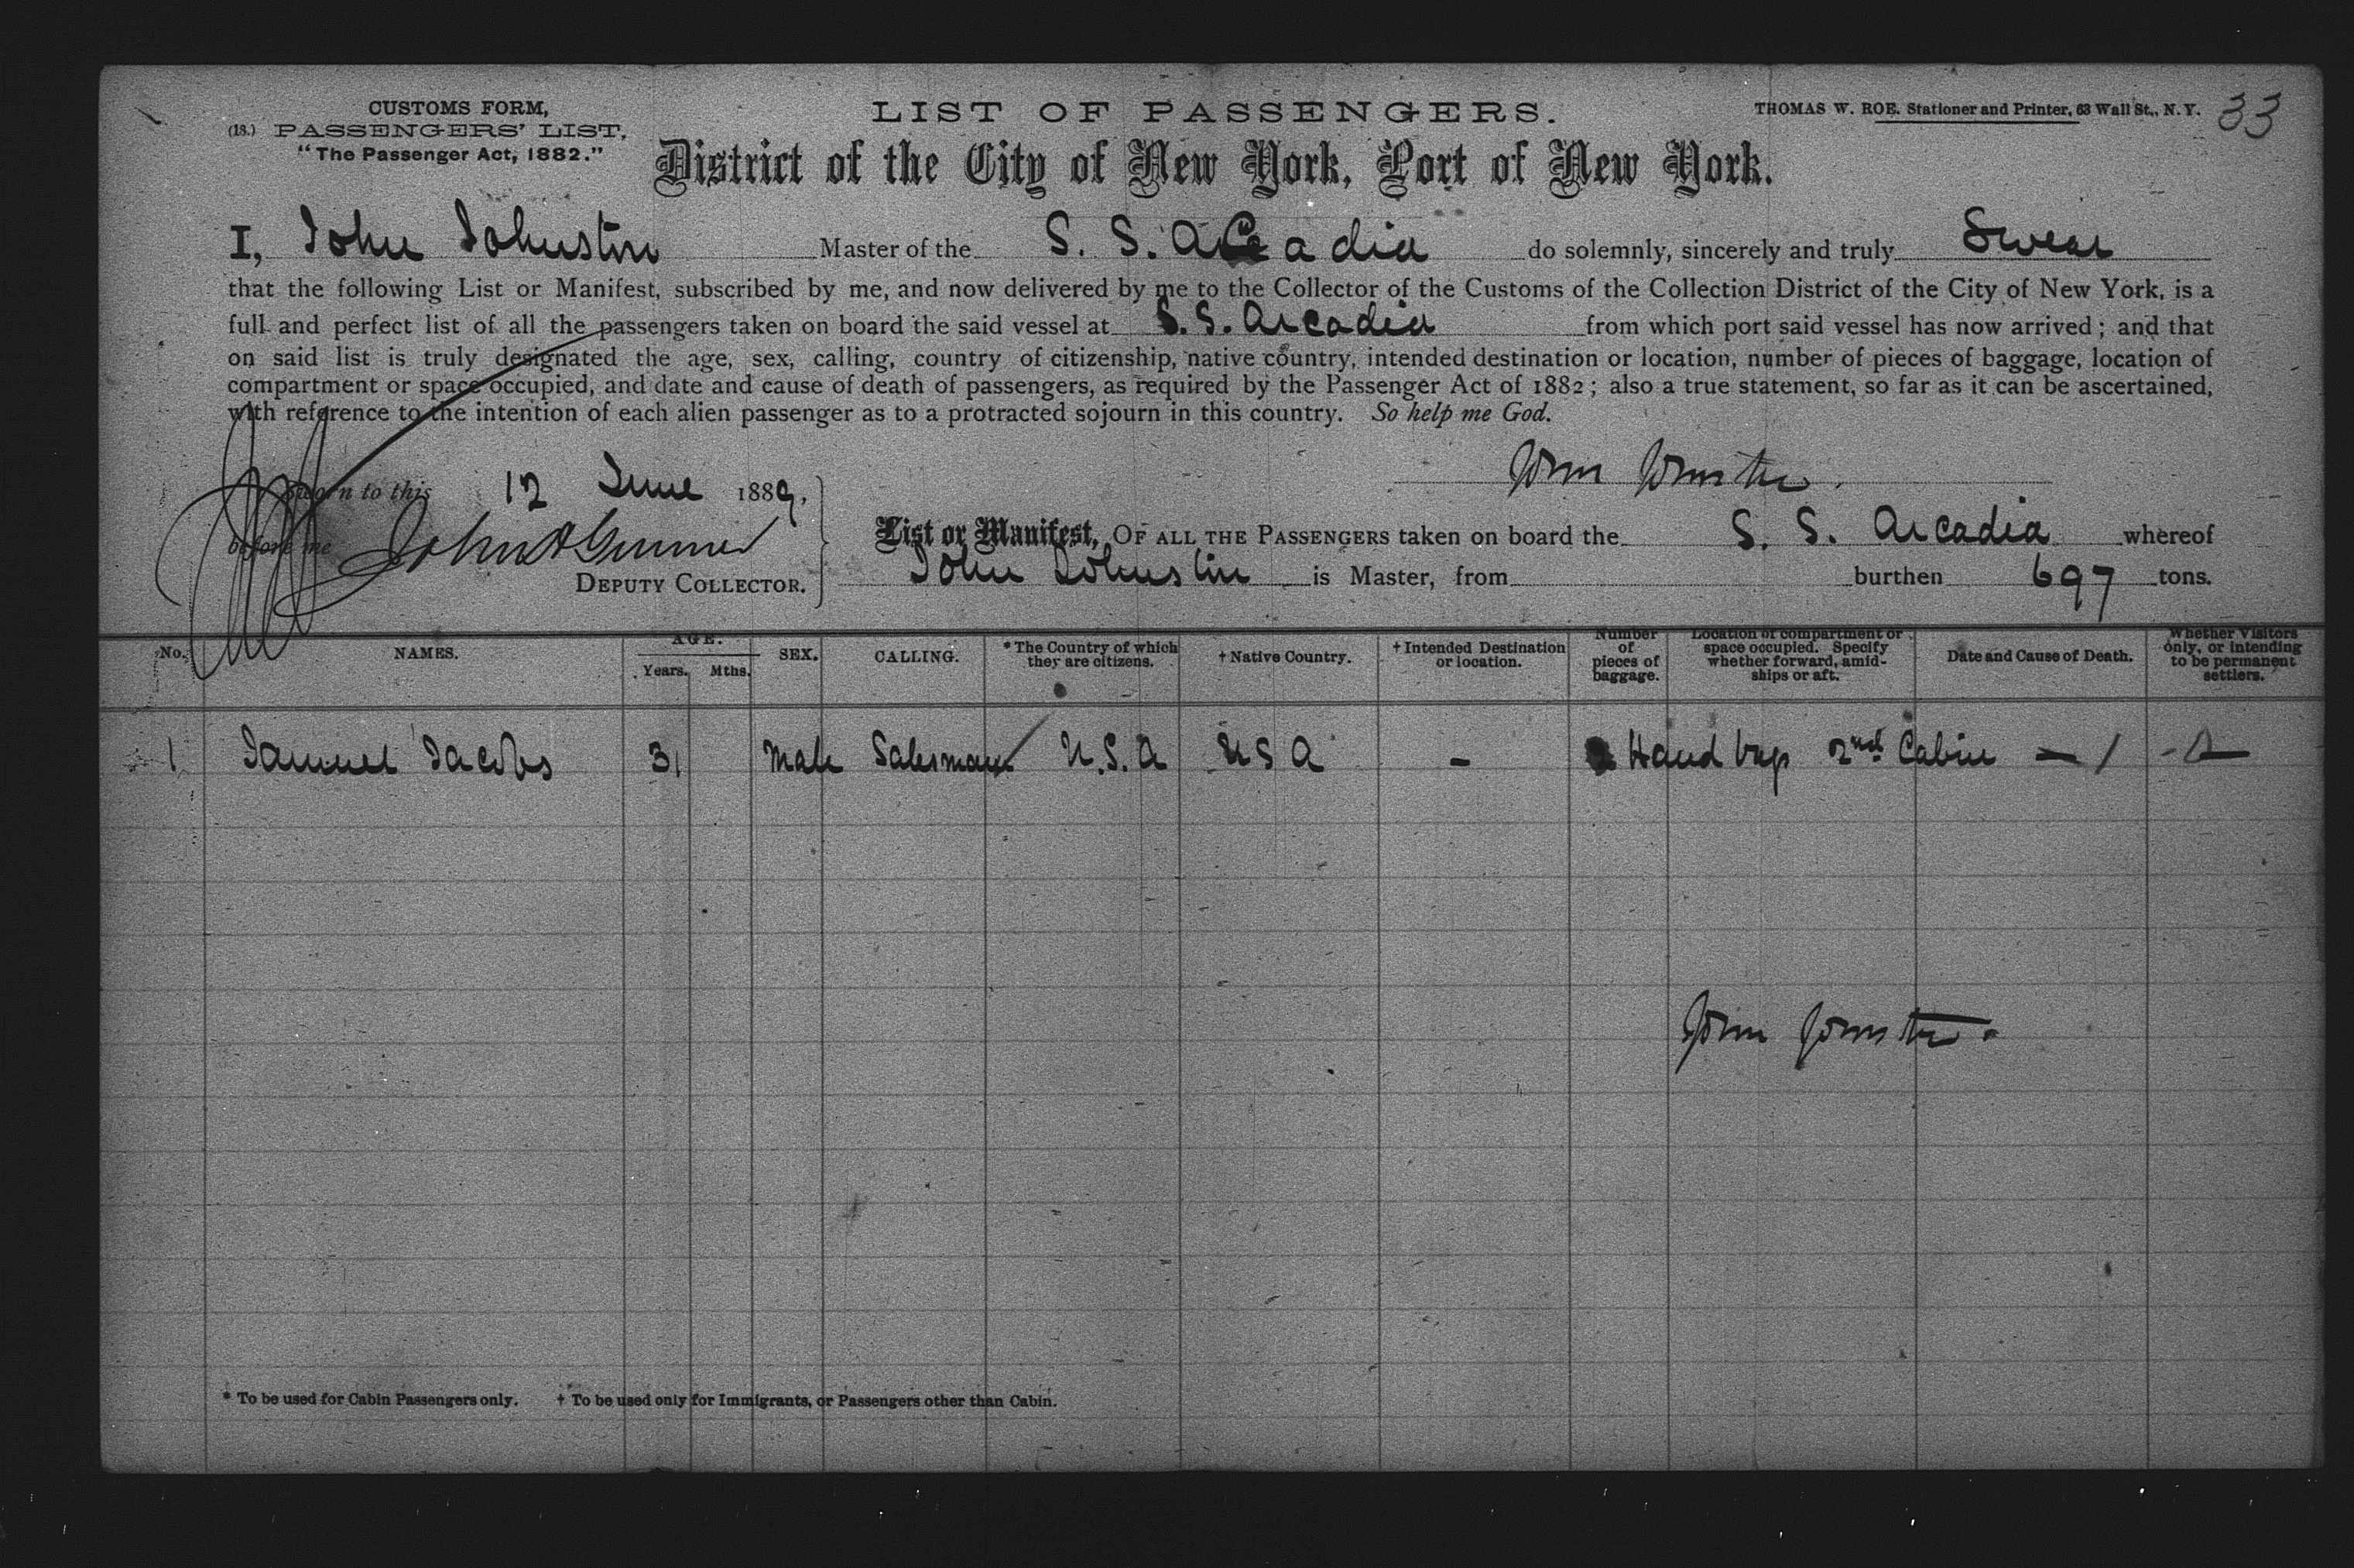 CUSTOMS FORM,
(18.) PASSENGERS' LIST,
"The Passenger Act, 1882."
LIST OF PASSENGERS.
THOMAS W. ROE. Stationer and Printer, 63 Wall St., N. Y.
33
District of the City of New York, Port of New York.
I, John Johnston Master of the S. S. Arcadia do solemnly, sincerely and truly Swear
that the following List or Manifest, subscribed by me, and now delivered by me to the Collector of the Customs of the Collection District of the City of New York, is a
full and perfect list of all the passengers taken on board the said vessel at S. S. Arcadia from which port said vessel has now arrived; and that
on said list is truly designated the age, sex, calling, country of citizenship, native country, intended destination or location, number of pieces of baggage, location of
compartment or space occupied, and date and cause of death of passengers, as required by the Passenger Act of 1882; also a true statement, so far as it can be ascertained,
with reference to the intention of each alien passenger as to a protracted sojourn in this country. So help me God.
John Johnston.
Sworn to this 12 June 1889,
before me John
DEPUTY COLLECTOR.
List or Manifest, OF ALL THE PASSENGERS taken on board the S. S. Arcadia whereof
John Johnston is Master, from burthen 697 tons.
No. NAMES. AGE. Years. Mths. SEX. CALLING. * The Country of which they are citizens. † Native Country. † Intended Destination or location. Number of pieces of baggage. Location of compartment or space occupied. Specify whether forward, amid-ships or aft. Date and Cause of Death. Whether Visitors only, or intending to be permanent settlers.
1 Samuel Jacobs 31 Male Salesman U.S.A U S A - Hand bag 2nd Cabin — / -
John Johnston.
* To be used for Cabin Passengers only. † To be used only for Immigrants, or Passengers other than Cabin.